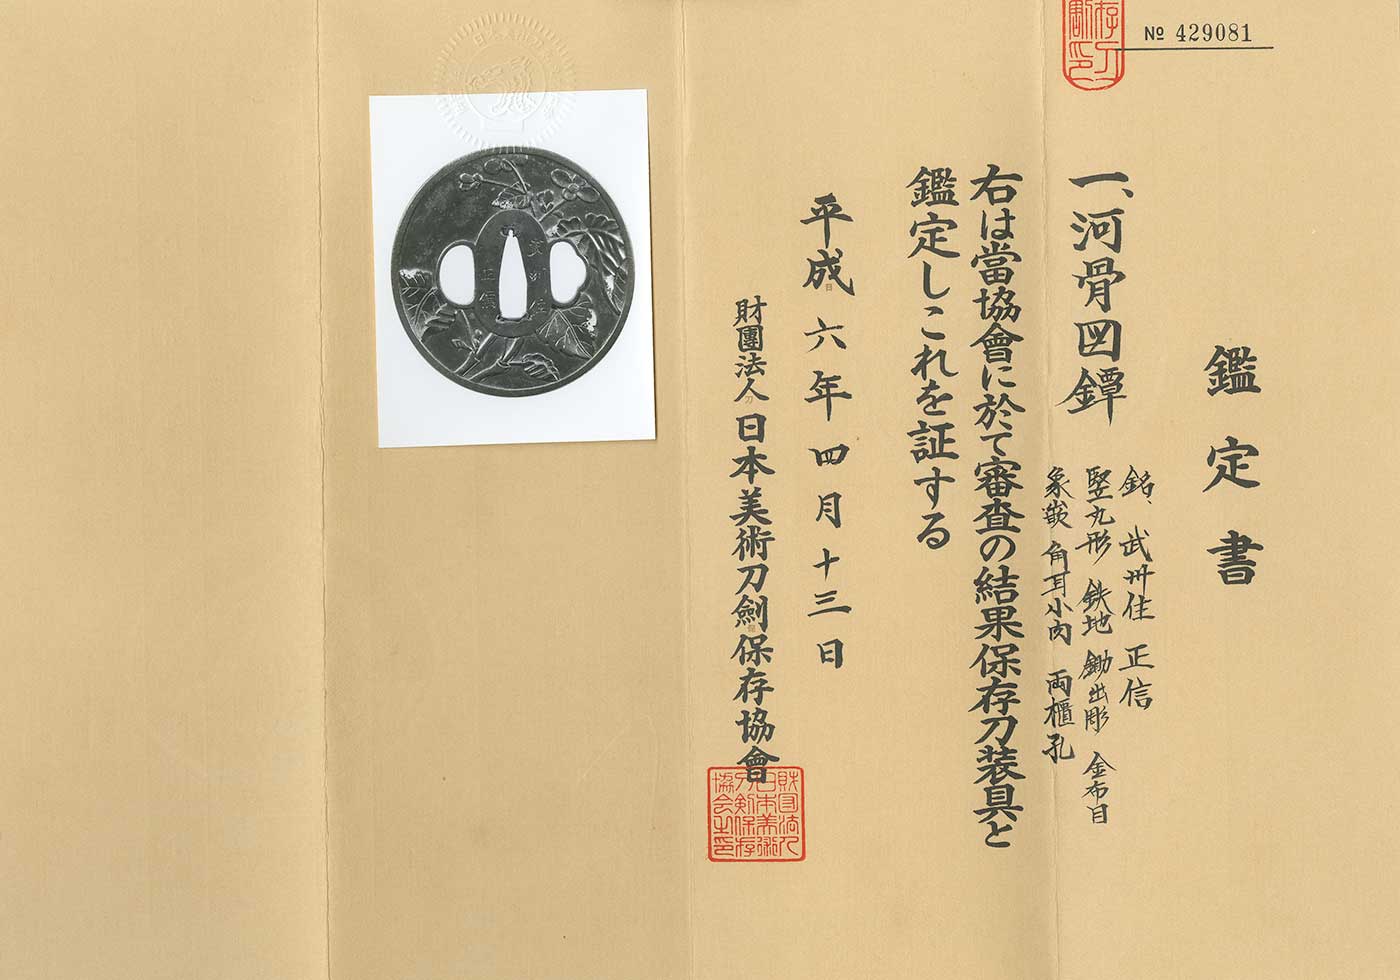 № 429081
鑑定書
一、河骨図鐔
銘、武州住 正信
竪丸形 鉄地 鋤出彫 金布目
象嵌 角耳小肉 両櫃孔
右は當協會に於て審査の結果保存刀装具と
鑑定しこれを証する
平成六年四月十三日
財團法人日本美術刀劍保存協會
財団法人
日本美術
刀剣保存
協会之印
武州住
正信